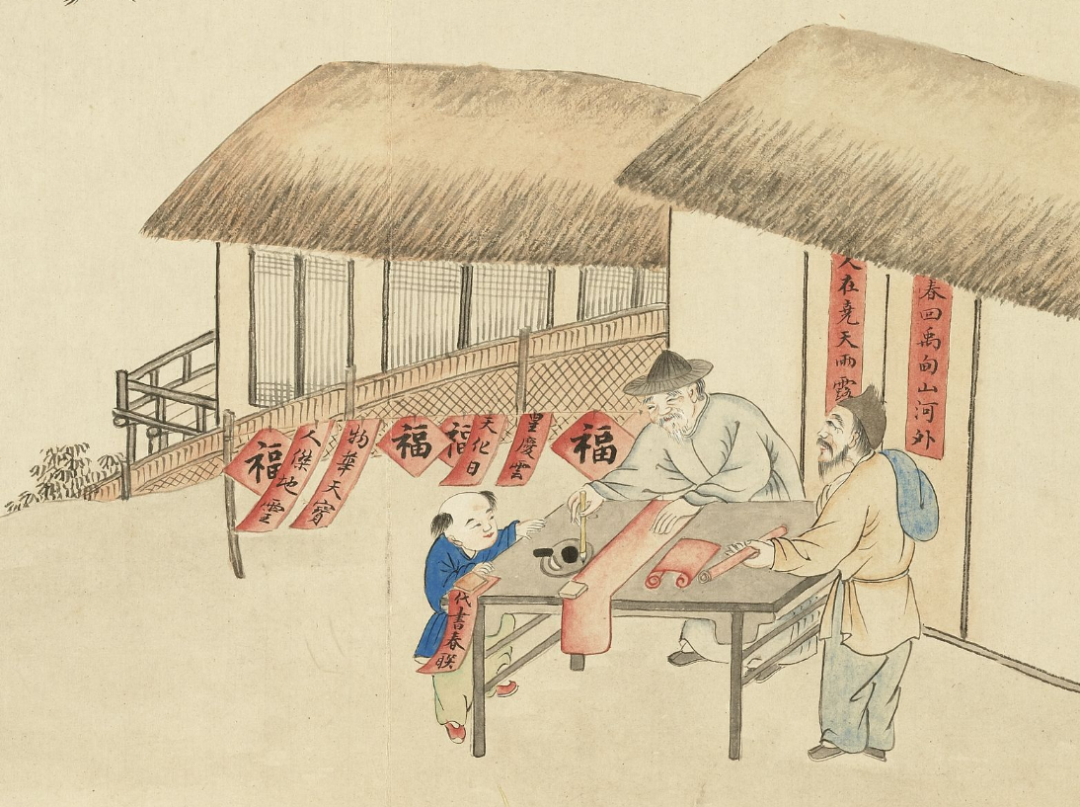 春回禹甸山河外
人在堯天雨露
福
皇慶雲
天化日
福
福
物華天寶
人傑地靈
福
代書春聯